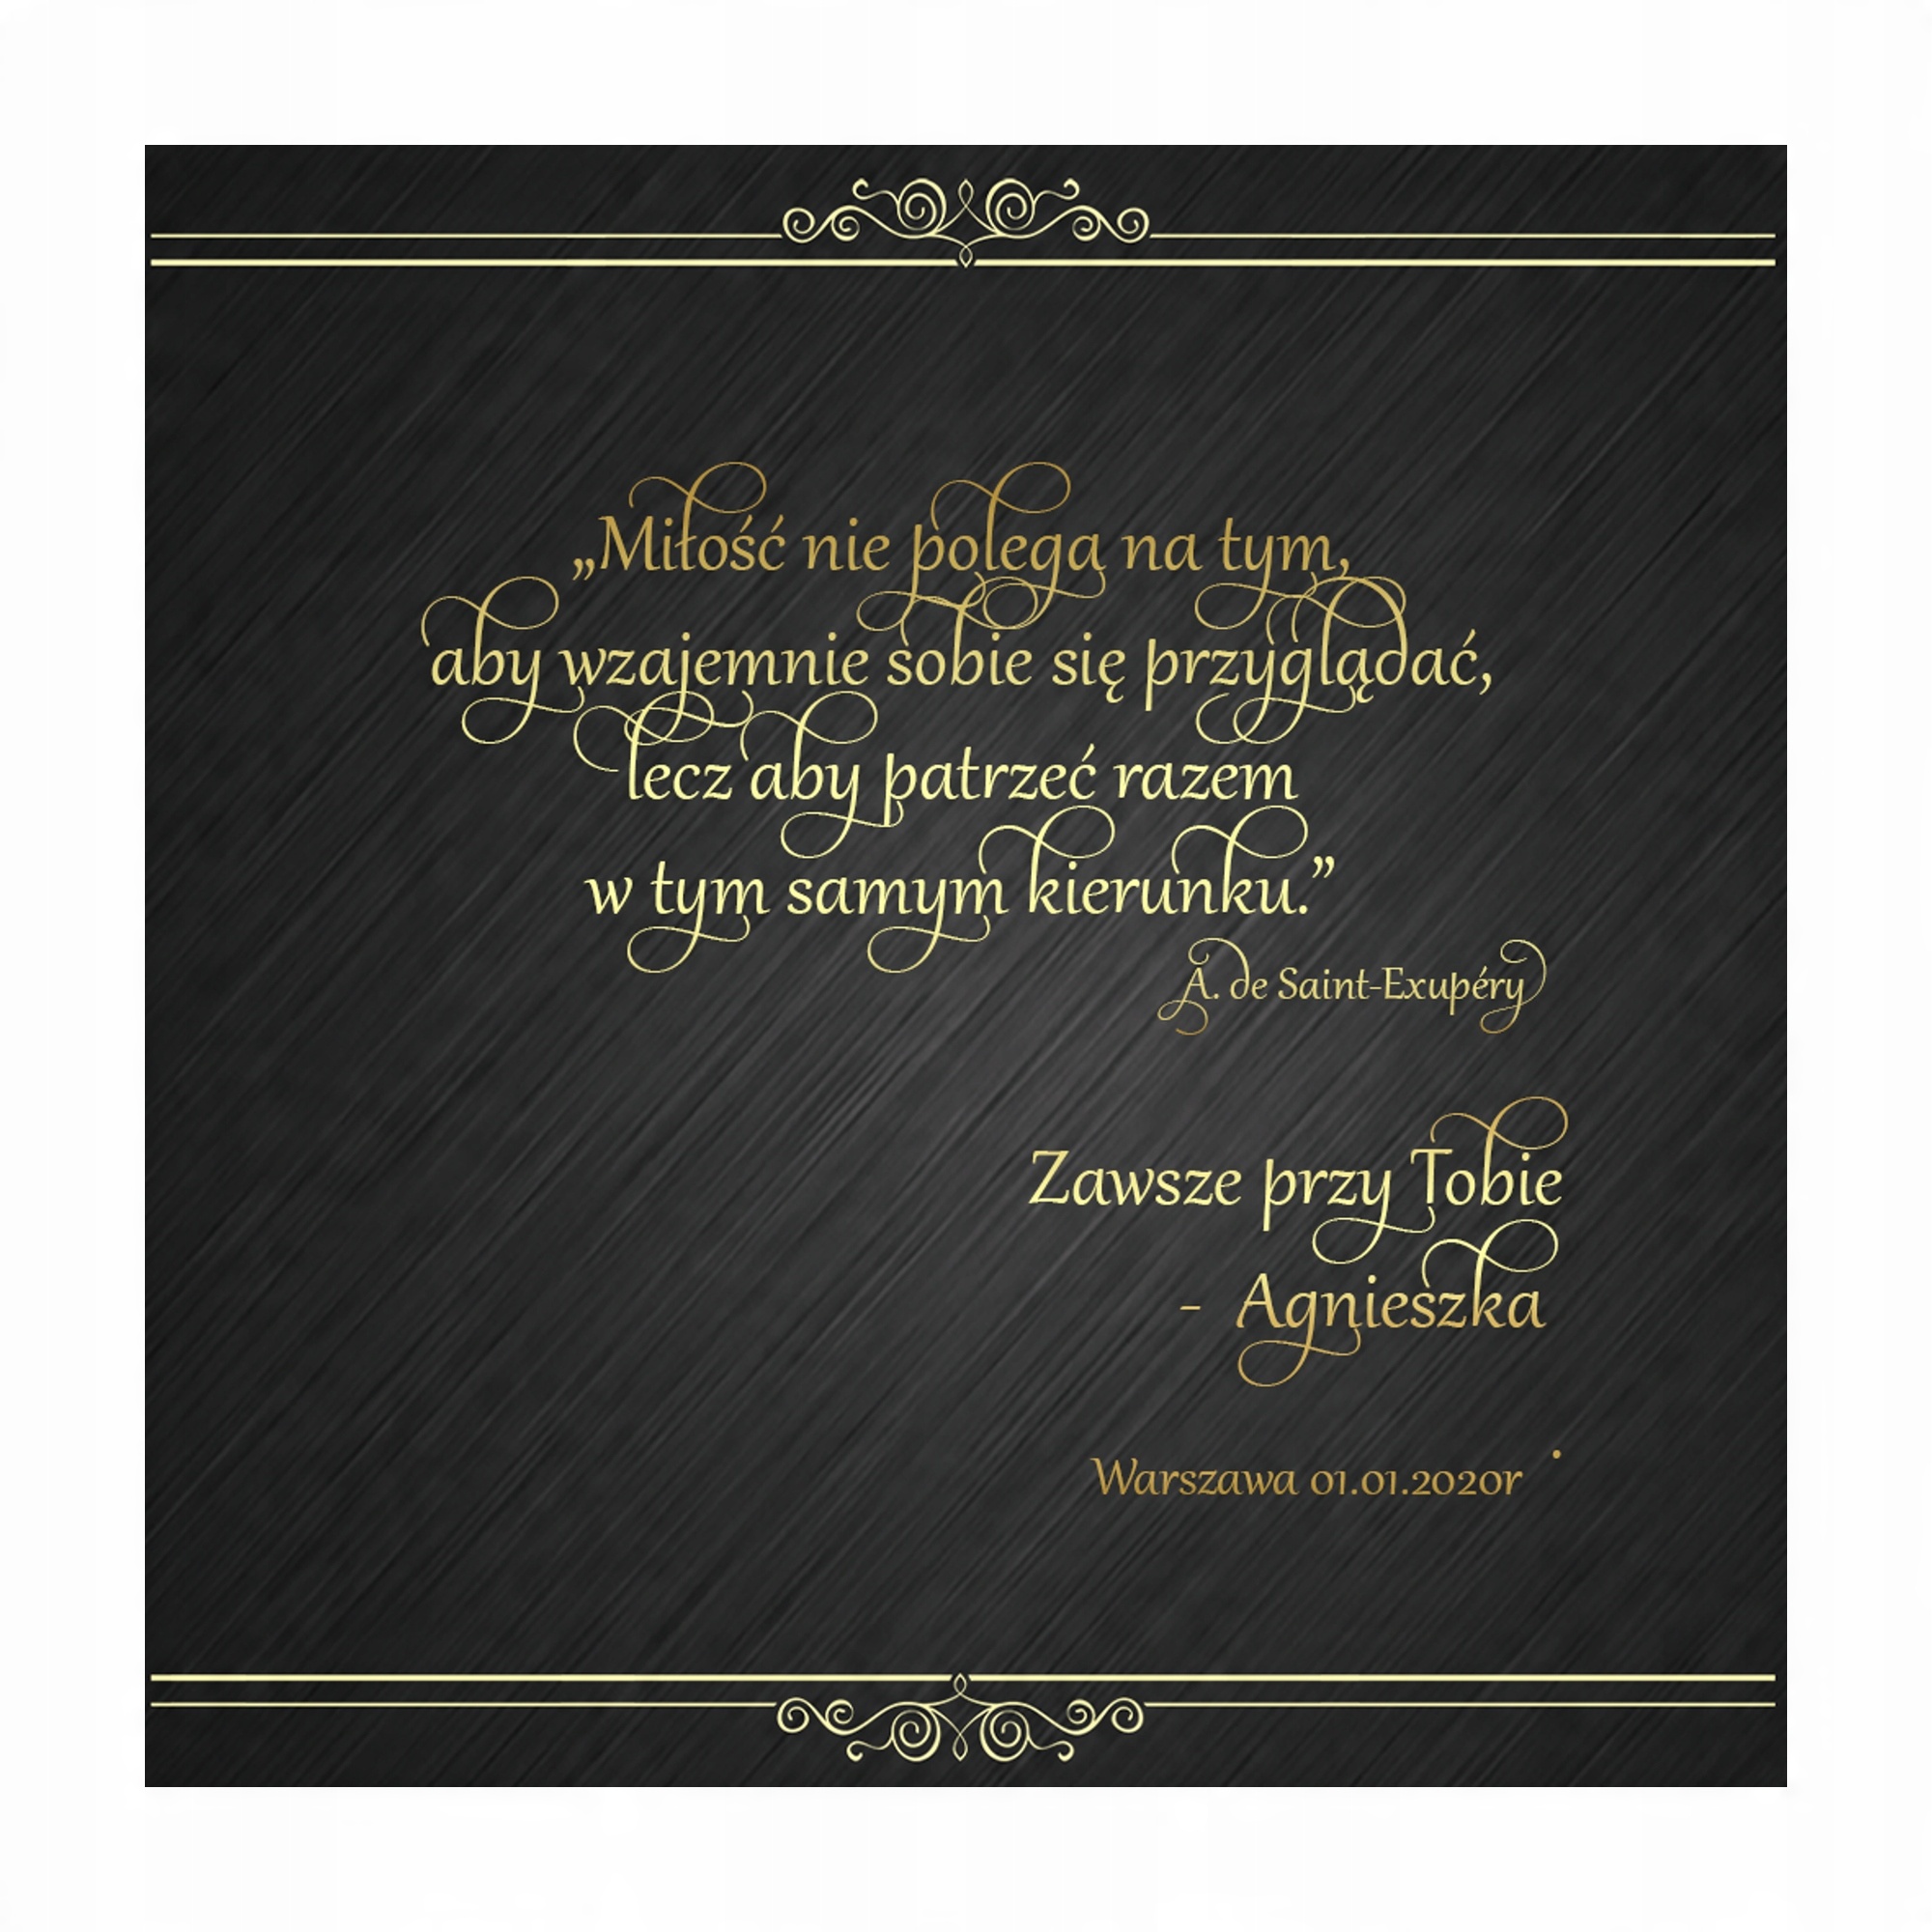 „Miłość nie polega na tym,
aby wzajemnie sobie się przyglądać,
lecz aby patrzeć razem
w tym samym kierunku.”
A. de Saint-Exupéry
Zawsze przy Tobie
- Agnieszka
Warszawa 01.01.2020r